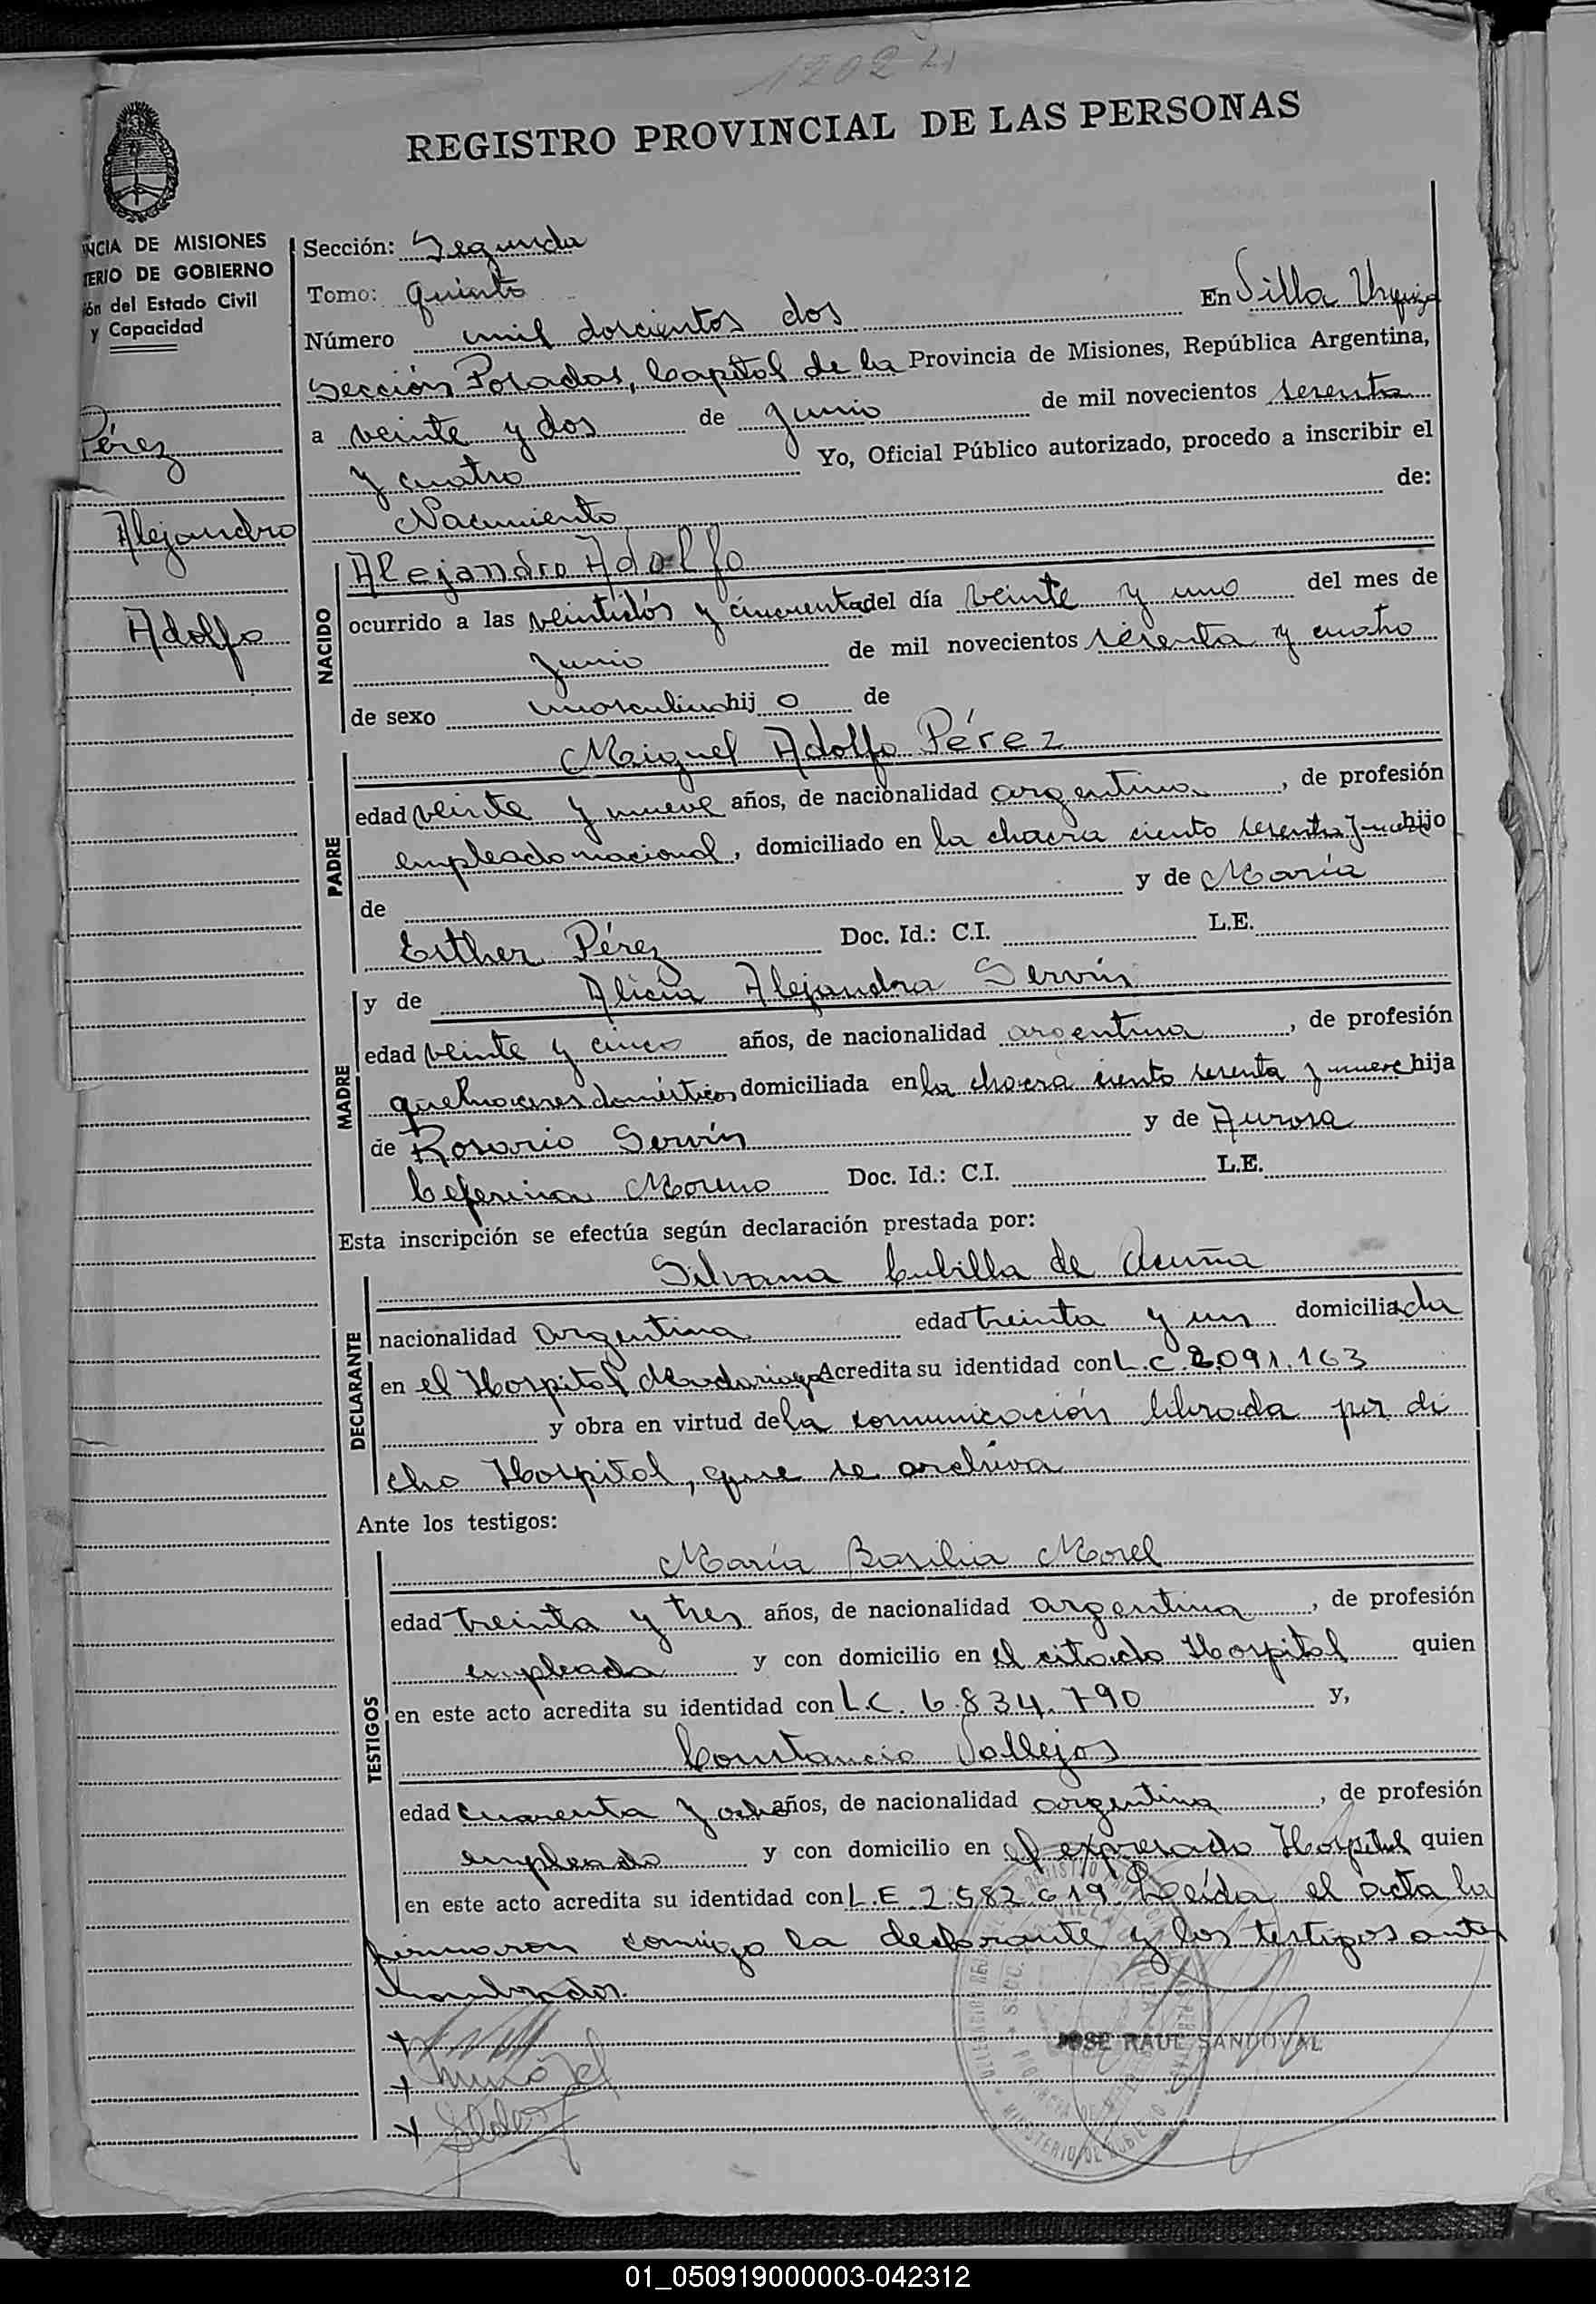 1202
REGISTRO PROVINCIAL DE LAS PERSONAS
NCIA DE MISIONES
TERIO DE GOBIERNO
ión del Estado Civil
y Capacidad
Pérez
Alejandro
Adolfo
Sección: Segunda
Tomo: quinto
Número mil doscientos dos En Villa Urquiza
Sección Posadas, Capital de la Provincia de Misiones, República Argentina,
a veinte y dos de Junio de mil novecientos sesenta
y cuatro Yo, Oficial Público autorizado, procedo a inscribir el
Nacimiento de:
NACIDO
Alejandro Adolfo
ocurrido a las veintidós y cincuenta del día veinte y uno del mes de
Junio de mil novecientos sesenta y cuatro
de sexo masculino hijo de
PADRE
Miguel Adolfo Pérez
edad veinte y nueve años, de nacionalidad argentina, de profesión
empleado nacional, domiciliado en la chacra ciento sesenta y nueve hijo
de y de María
Esther Pérez Doc. Id.: C.I. L.E.
MADRE
y de Alicia Alejandra Servín
edad veinte y cinco años, de nacionalidad argentina, de profesión
quehaceres domésticos domiciliada en la chacra ciento sesenta y nueve hija
de Rosario Servín y de Aurora
Ceferina Moreno Doc. Id.: C.I. L.E.
Esta inscripción se efectúa según declaración prestada por:
DECLARANTE
Silvana Cubilla de Acuña
nacionalidad argentina edad treinta y un domiciliada
en el Hospital Madariaga Acredita su identidad con L.C. 2.091.163
y obra en virtud de la comunicación librada por di
cho Hospital, que se archiva
Ante los testigos:
TESTIGOS
María Basilia Morel
edad treinta y tres años, de nacionalidad argentina, de profesión
empleada y con domicilio en el citado Hospital quien
en este acto acredita su identidad con L.C. 6.834.790 y,
Constancio Vallejos
edad cuarenta y ocho años, de nacionalidad argentina, de profesión
empleado y con domicilio en el expresado Hospital quien
en este acto acredita su identidad con L.E. 2.582.619 Leída el acta la
firmaron conmigo la declarante y los testigos ante
nombrados.
JOSE RAUL SANDOVAL
01_050919000003-042312